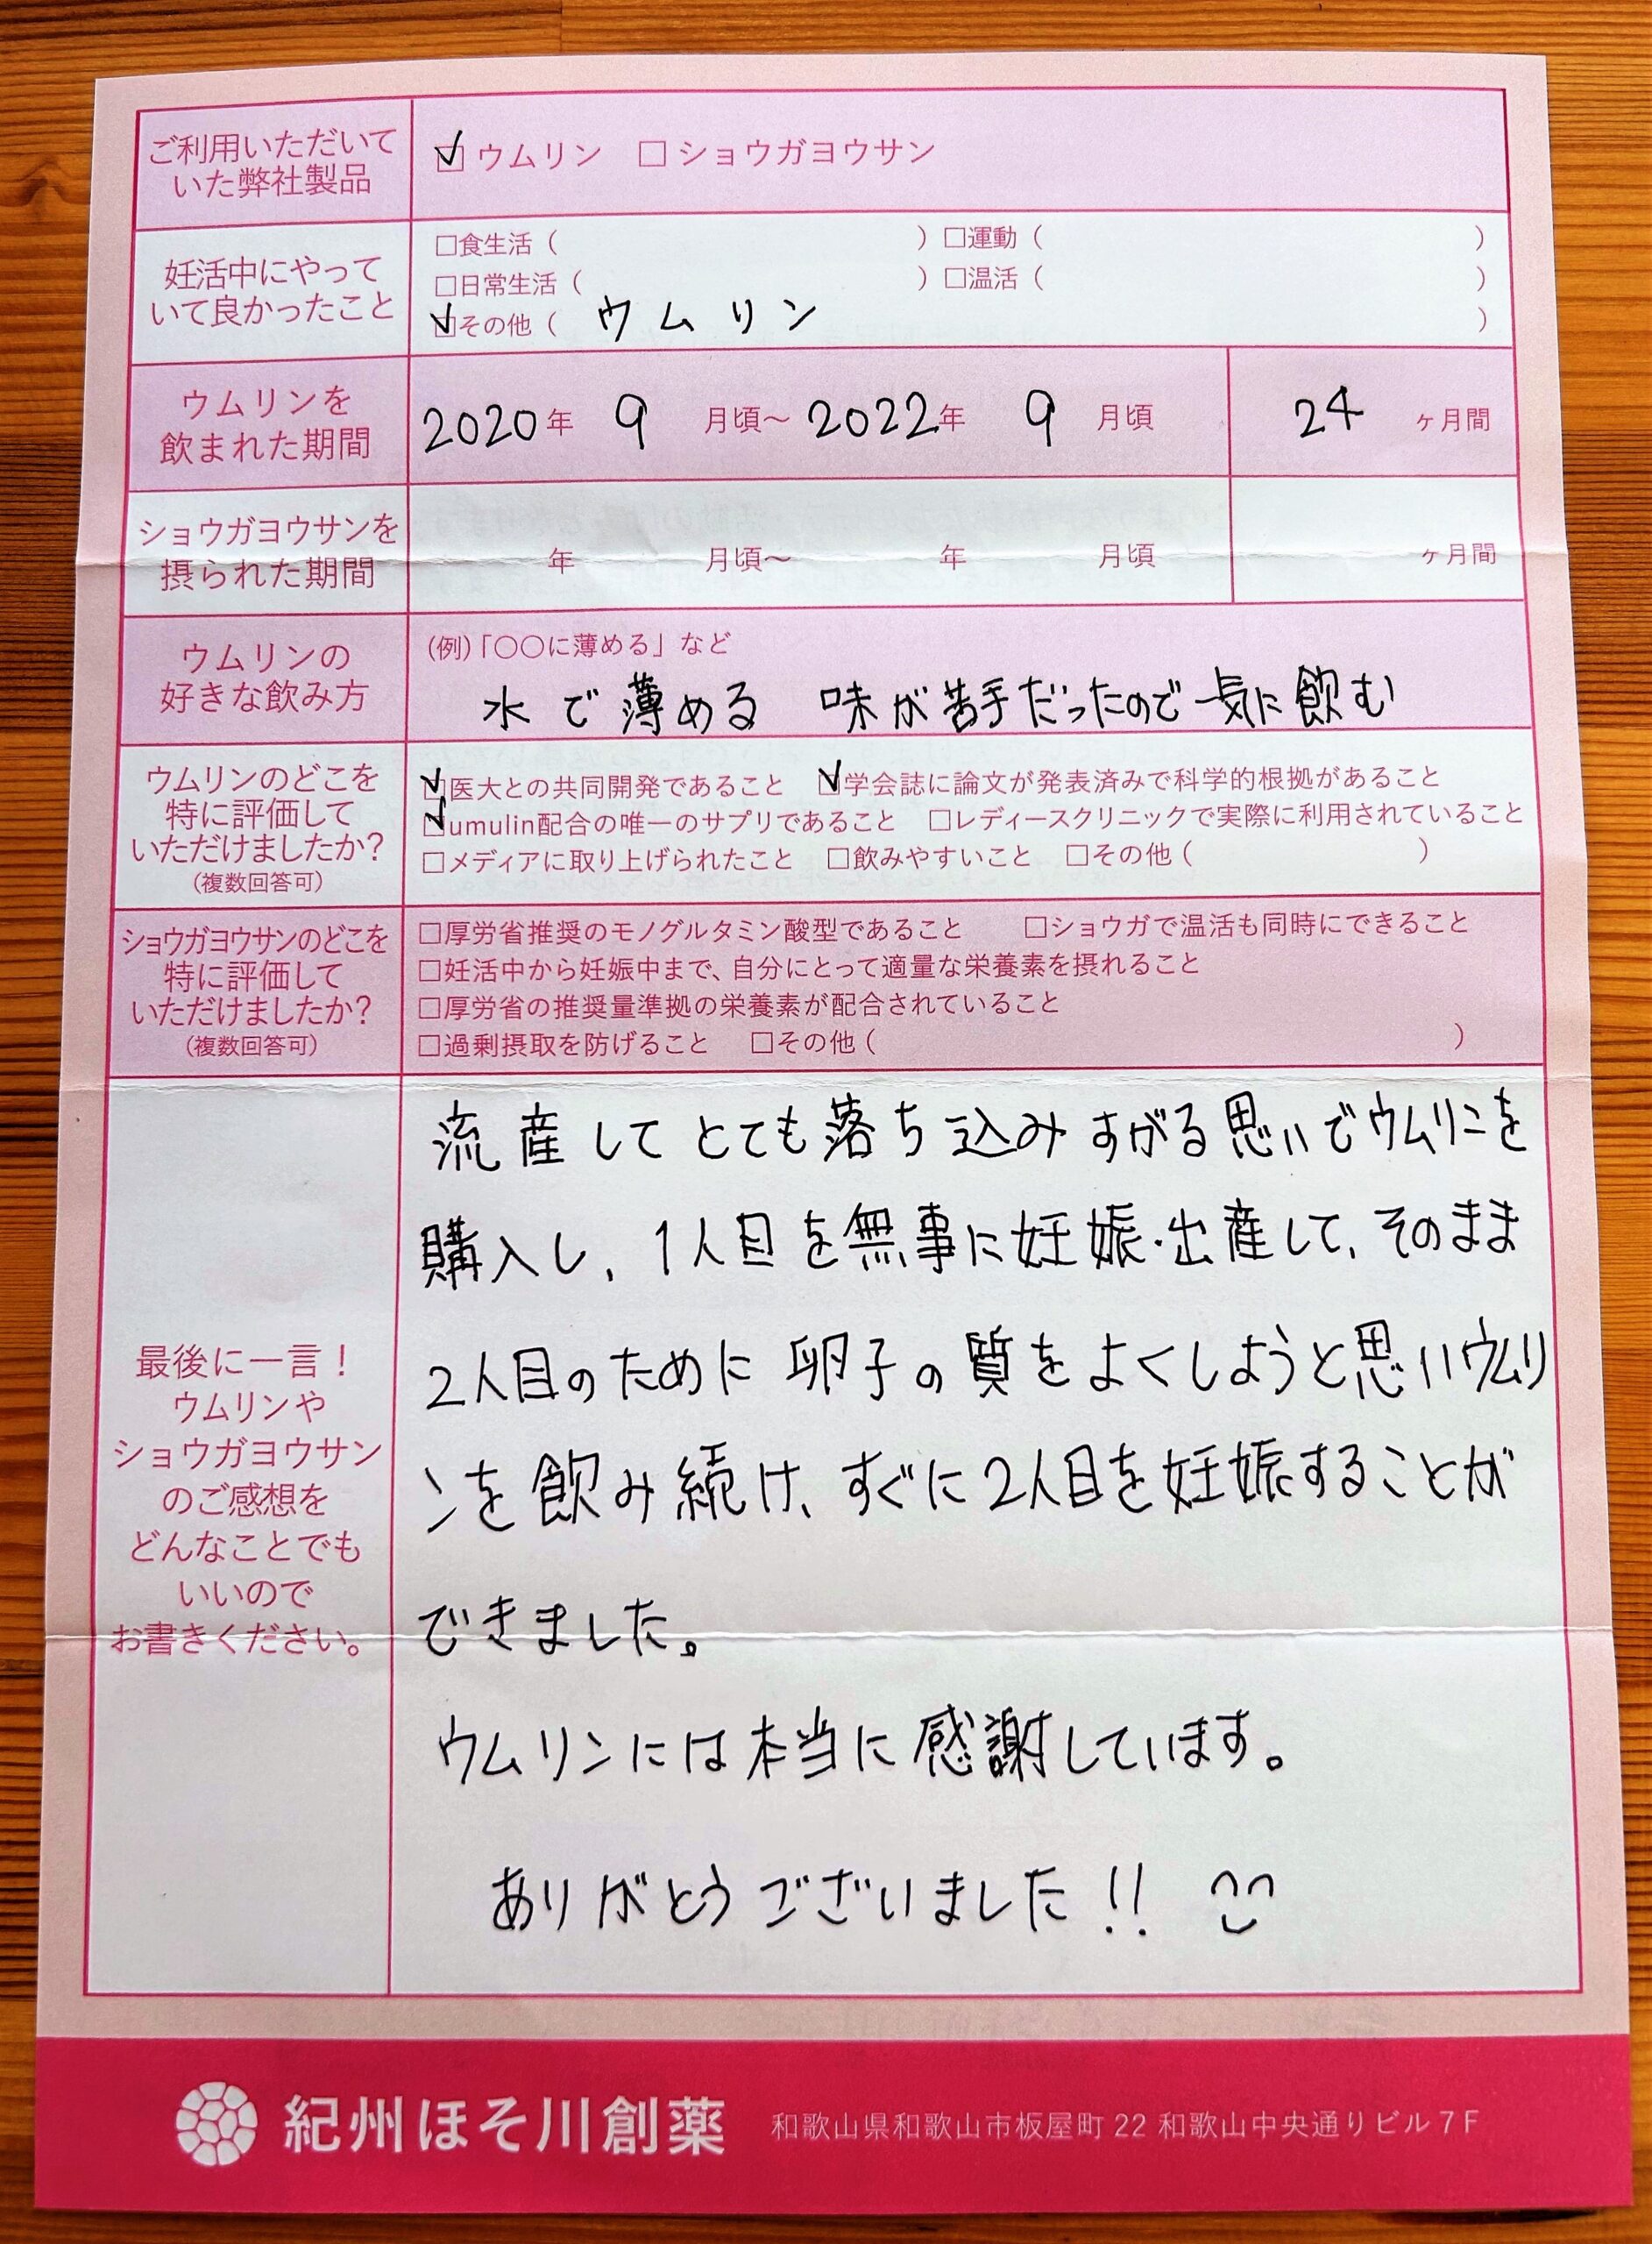 ご利用いただいて
いた弊社製品
☑ウムリン □ショウガヨウサン
妊活中にやって
いて良かったこと
□食生活（ ）□運動（ ）
□日常生活（ ）□温活（ ）
☑その他（ ウムリン ）
ウムリンを
飲まれた期間
2020年 9 月頃～2022年 9 月頃 24 ヶ月間
ショウガヨウサンを
摂られた期間
年 月頃～ 年 月頃 ヶ月間
ウムリンの
好きな飲み方
(例)「○○に薄める」など
水で薄める 味が苦手だったので一気に飲む
ウムリンのどこを
特に評価して
いただけましたか?
(複数回答可)
☑医大との共同開発であること ☑学会誌に論文が発表済みで科学的根拠があること
☑umulin配合の唯一のサプリであること □レディースクリニックで実際に利用されていること
□メディアに取り上げられたこと □飲みやすいこと □その他（ ）
ショウガヨウサンのどこを
特に評価して
いただけましたか?
(複数回答可)
□厚労省推奨のモノグルタミン酸型であること □ショウガで温活も同時にできること
□妊活中から妊娠中まで、自分にとって適量な栄養素を摂れること
□厚労省の推奨量準拠の栄養素が配合されていること
□過剰摂取を防げること □その他（ ）
最後に一言！
ウムリンや
ショウガヨウサン
のご感想を
どんなことでも
いいので
お書きください。
流産してとても落ち込みすがる思いでウムリンを
購入し、1人目を無事に妊娠・出産して、そのまま
2人目のために卵子の質をよくしようと思いウムリ
ンを飲み続け、すぐに2人目を妊娠することが
できました。
ウムリンには本当に感謝しています。
ありがとうございました!!
紀州ほそ川創薬 和歌山県和歌山市板屋町 22 和歌山中央通りビル 7F